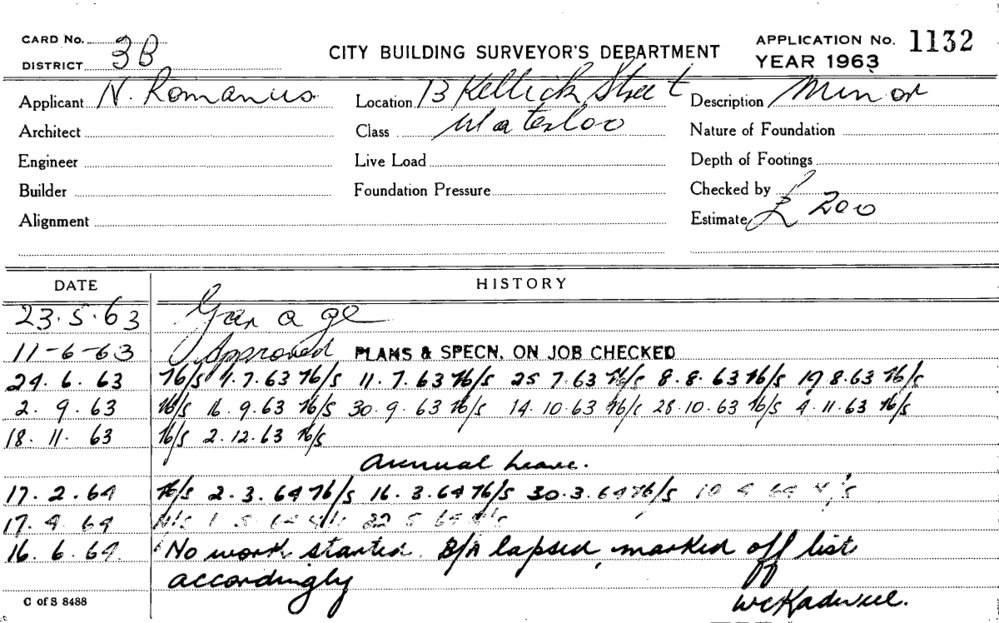 CARD No. 3B
DISTRICT
CITY BUILDING SURVEYOR'S DEPARTMENT
APPLICATION No. 1132
YEAR 1963
Applicant N. Romanus Location 13 Kellick Street Description Minor
Architect Class Waterloo Nature of Foundation
Engineer Live Load Depth of Footings
Builder Foundation Pressure Checked by
Alignment Estimate £ 200
DATE HISTORY
23.5.63 Garage
11-6-63 Approved PLANS & SPECN. ON JOB CHECKED
24.6.63 N/S 9.7.63 N/S 11.7.63 N/S 25 7.63 N/S 8.8.63 N/S 19 8.63 N/S
2.9.63 N/S 16.9.63 N/S 30.9.63 N/S 14.10.63 N/S 28.10.63 N/S 4.11.63 N/S
18.11.63 N/S 2.12.63 N/S
Annual Leave.
17.2.64 N/S 2.3.64 N/S 16.3.64 N/S 30.3.64 N/S 10 4 64 N/S
17.4.64 N/S 1 5 64 N/S 22 5 64 N/S
16.6.64 No work started. B/A lapsed, marked off list
accordingly
C of S 8488